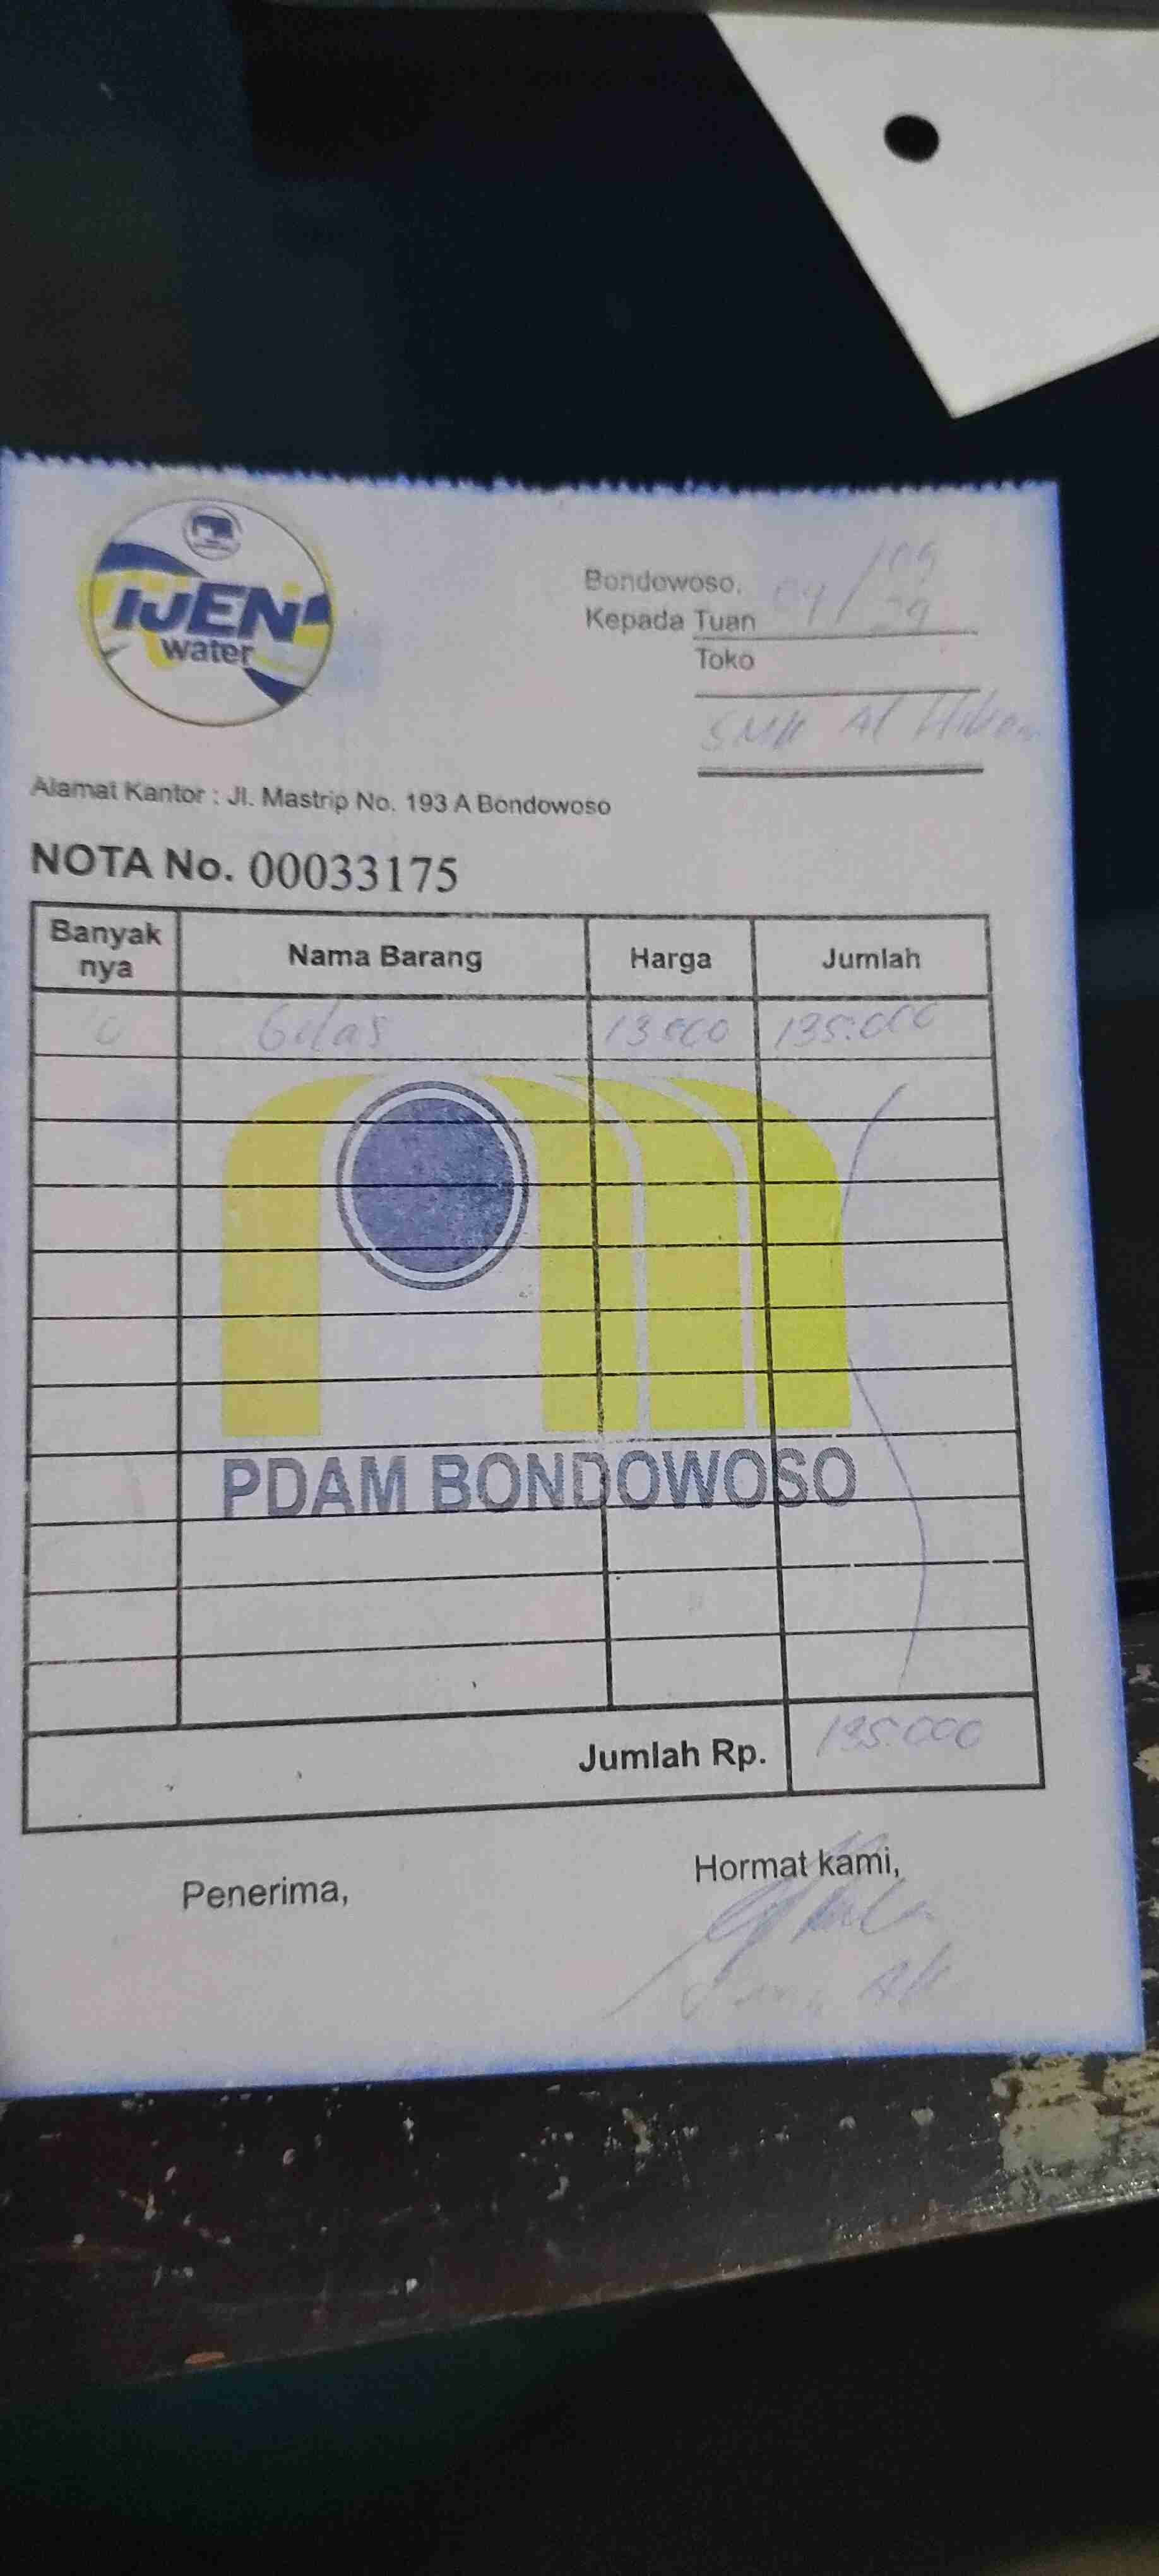 IJEN
water
Bondowoso,
Kepada Tuan
Toko
SMK Al Hikam
Alamat Kantor : Jl. Mastrip No. 193 A Bondowoso
NOTA No. 00033175
Banyak nya Nama Barang Harga Jumlah
Gelas 13500 135.000
PDAM BONDOWOSO
Jumlah Rp. 135.000
Penerima, Hormat kami,